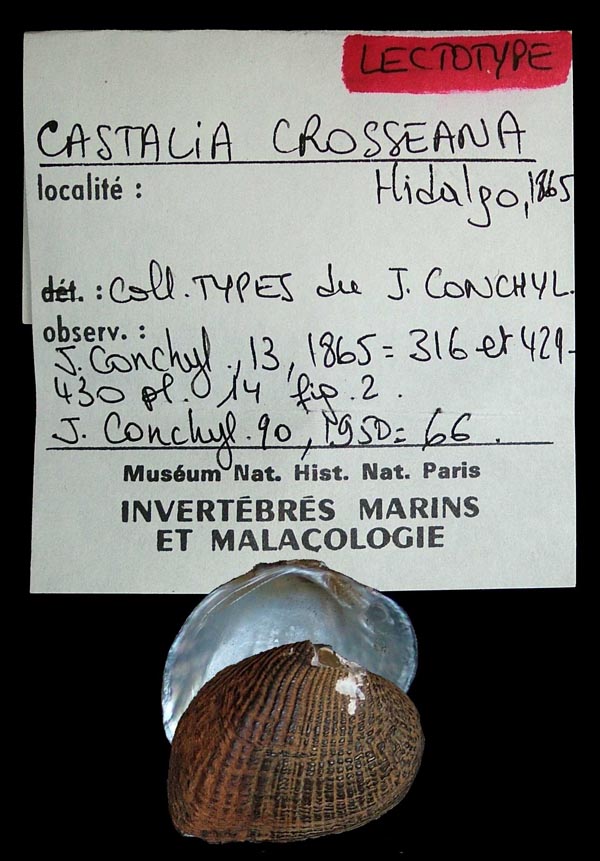 LECTOTYPE
CASTALIA CROSSEANA
localité : Hidalgo, 1865
dét. : Coll. TYPES du J. CONCHYL.
observ. :
J. Conchyl., 13, 1865 = 316 et 429-
430 pl. 14 fig. 2.
J. Conchyl. 90, 1950 = 66.
Muséum Nat. Hist. Nat. Paris
INVERTÉBRÉS MARINS
ET MALACOLOGIE